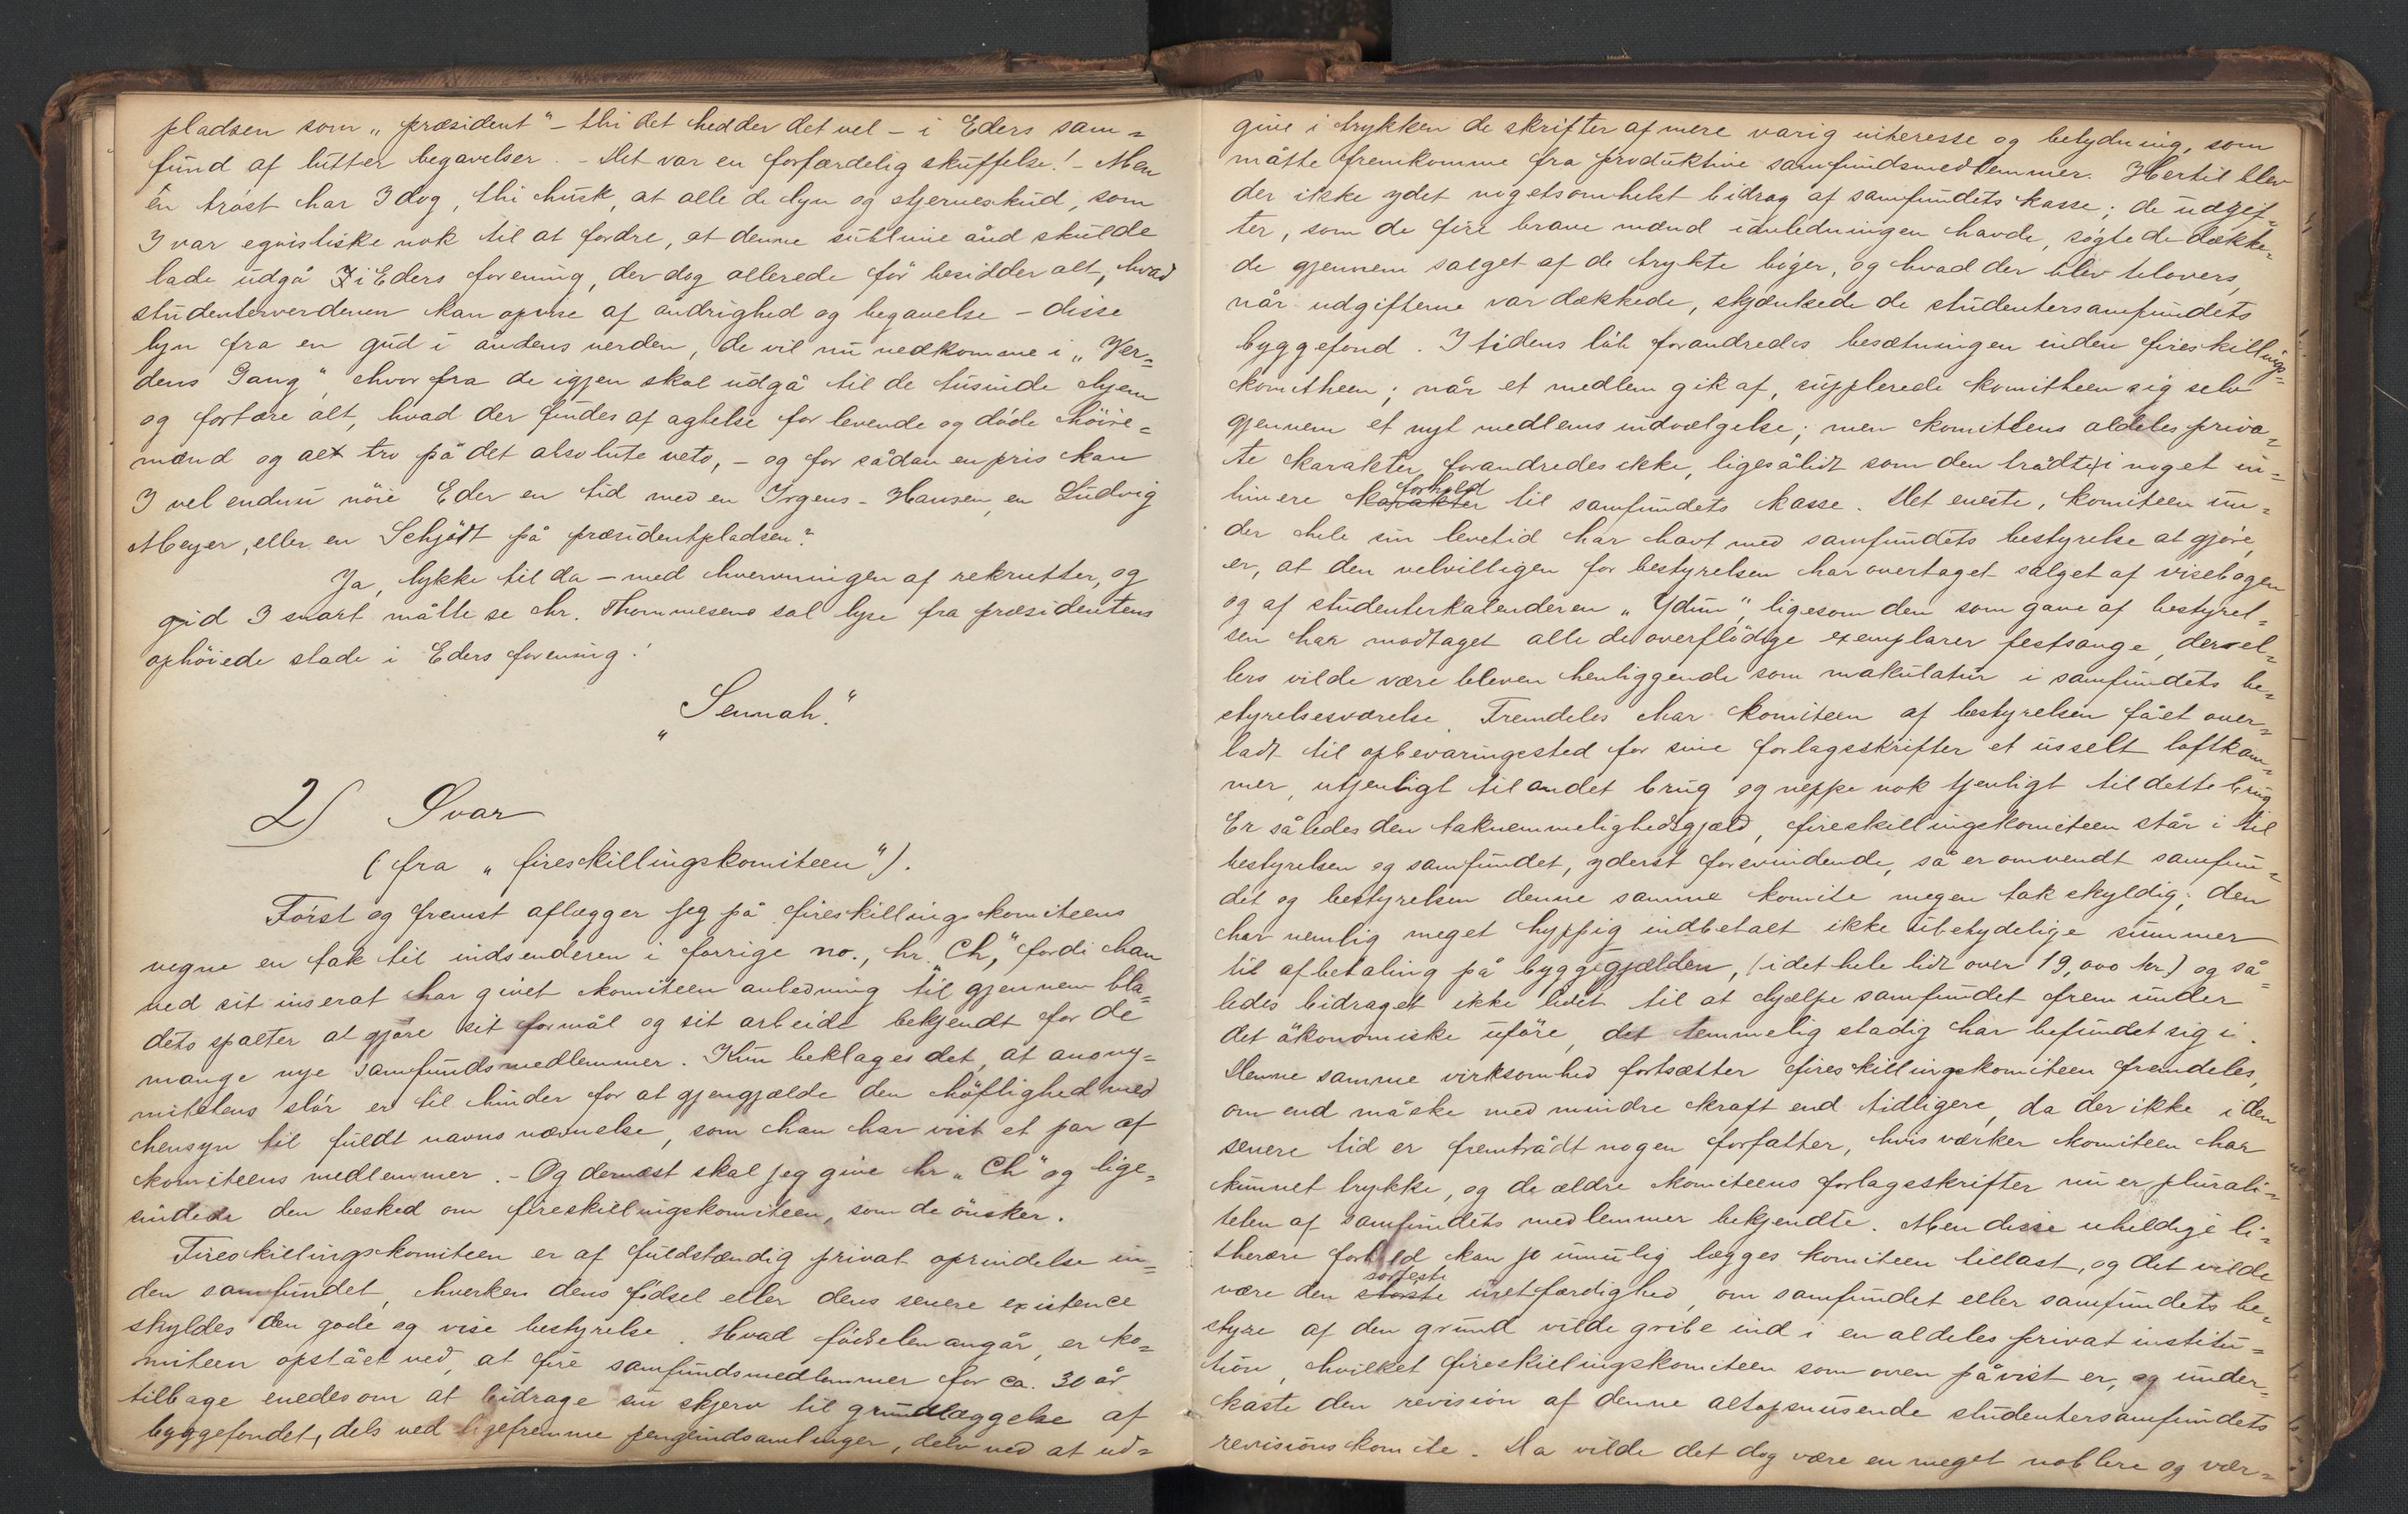 pladsen som „præsident“ – thi det hedder det vel – i Eders sam=
fund af lutter begavelser. – Det var en forfærdelig skuffelse! – Men
én tröst har I dog, thi husk, at alle de lyn og stjerneskud, som
I var egoistiske nok til at fordre, at denne sublime ånd skulde
lade udgå i Eders forening, der dog allerede för besidder alt, hvad
studenterverdenen kan opvise af åndrighed og begavelse – disse
lyn fra en gud i åndens verden, de vil nu nedkomme i „Ver=
dens Gang“, hvorfra de igjen skal udgå til de tusinde hjem
og fortære alt, hvad der findes af agtelse for levende og döde höire=
mænd og alt tro på det absolute veto, – og for sådan en pris kan
I vel endnu nöie Eder en tid med en Irgens-Hansen, en Ludvig
Meyer, eller en Schjödt på præsidentpladsen?
Ja, lykke til da – med hvervningen af rekrutter, og
gid I snart måtte se hr. Thommesens sol lyse fra præsidentens
ophöiede stade i Eders forening!
„Sennah.“
2) Svar
(fra „fireskillingskomiteen“).
Först og fremst aflægger jeg på fireskillingskomiteens
vegne en tak til indsenderen i forrige no., hr. „Ch“, fordi han
ved sit inserat har givet komiteen anledning til gjennem bla=
dets spalter at gjöre sit formål og sit arbeide bekjendt for de
mange nye samfundsmedlemmer. Kun beklages det, at anony=
mitetens slör er til hinder for at gjengjælde den höflighed med
hensyn til fuldt navns nævnelse, som han har vist et par af
komiteens medlemmer. – Og dernæst skal jeg give hr „Ch“ og lige=
sindede den besked om fireskillingskomiteen, som de önsker.
Fireskillingskomiteen er af fuldstændig privat oprindelse in=
den samfundet, hverken dens födsel eller dens senere existence
skyldes den gode og vise bestyrelse. Hvad födselen angår, er ko=
miteen opstået ved, at fire samfundsmedlemmer for ca. 30 år
tilbage enedes om at bidrage sin skjerv til grundlæggelse af
byggefondet, dels ved ligefremme pengeindsamlinger, dels ved at ud=
give i trykken de skrifter af mere varig interesse og betydning, som
måtte fremkomme fra produktive samfundsmedlemmer. Hertil blev
der ikke ydet nogetsomhelst bidrag af samfundets kasse; de udgif=
ter, som de fire brave mænd i anledningen havde, sögte de dække=
de gjennem salget af de trykte böger, og hvad der blev tilovers,
når udgifterne var dækkede, skjænkede de studentersamfundets
byggefond. I tidens löb forandredes besætningen inden fireskillings=
komitheen; når et medlem gik af, supplerede komitheen sig selv
gjennem et nyt medlems indvælgelse; men komiteens aldeles priva=
te karakter forandredes ikke, ligesålidt som den trådte i noget in=
timere karakter forhold til samfundets kasse. Det eneste, komiteen un=
der hele sin levetid har havt med samfundets bestyrelse at gjöre,
er, at den velvilligen for bestyrelsen har overtaget salget af visebogen
og af studenterkalenderen „Ydun“, ligesom den som gave af bestyrel=
sen har modtaget alle de overflödige exemplarer festsange, der el=
lers vilde være bleven henliggende som makulatur i samfundets be=
styrelsesværelse. Fremdeles har komiteen af bestyrelsen fået over=
ladt til opbevaringssted for sine forlagsskrifter et usselt loftkam=
mer, utjenligt til andet brug og neppe nok tjenligt til dette brug.
Er således den taknemmelighedsgjæld, fireskillingskomiteen står i til
bestyrelsen og samfundet, yderst forsvindende, så er omvendt samfun=
det og bestyrelsen denne samme komite megen tak skyldig; den
har nemlig meget hyppig indbetalt ikke ubetydelige summer
til afbetaling på byggegjælden, (i det hele lidt over 19,000 kr) og så=
ledes bidraget ikke lidet til at hjælpe samfundet frem under
det ökonomiske uföre, det temmelig stadig har befundet sig i.
Denne samme virksomhed fortsætter fireskillingskomiteen fremdeles,
om end måske med mindre kraft end tidligere, da der ikke i den
senere tid er fremtrådt nogen forfatter, hvis værker komiteen har
kunnet trykke, og de ældre komiteens forlagsskrifter nu er plurali=
teten af samfundets medlemmer bekjendte. Men disse uheldige li=
therære forhold kan jo umulig lægges komiteen tillast, og det vilde
være den störste sorteste uretfærdighed, om samfundet eller samfundets be=
styre af den grund vilde gribe ind i en aldeles privat institu=
tion, hvilket fireskillingskomiteen som oven påvist er, og under=
kaste den revision af denne altopsnusende studentersamfundets
revisionskomite. Da vilde det dog være en meget noblere og vær=